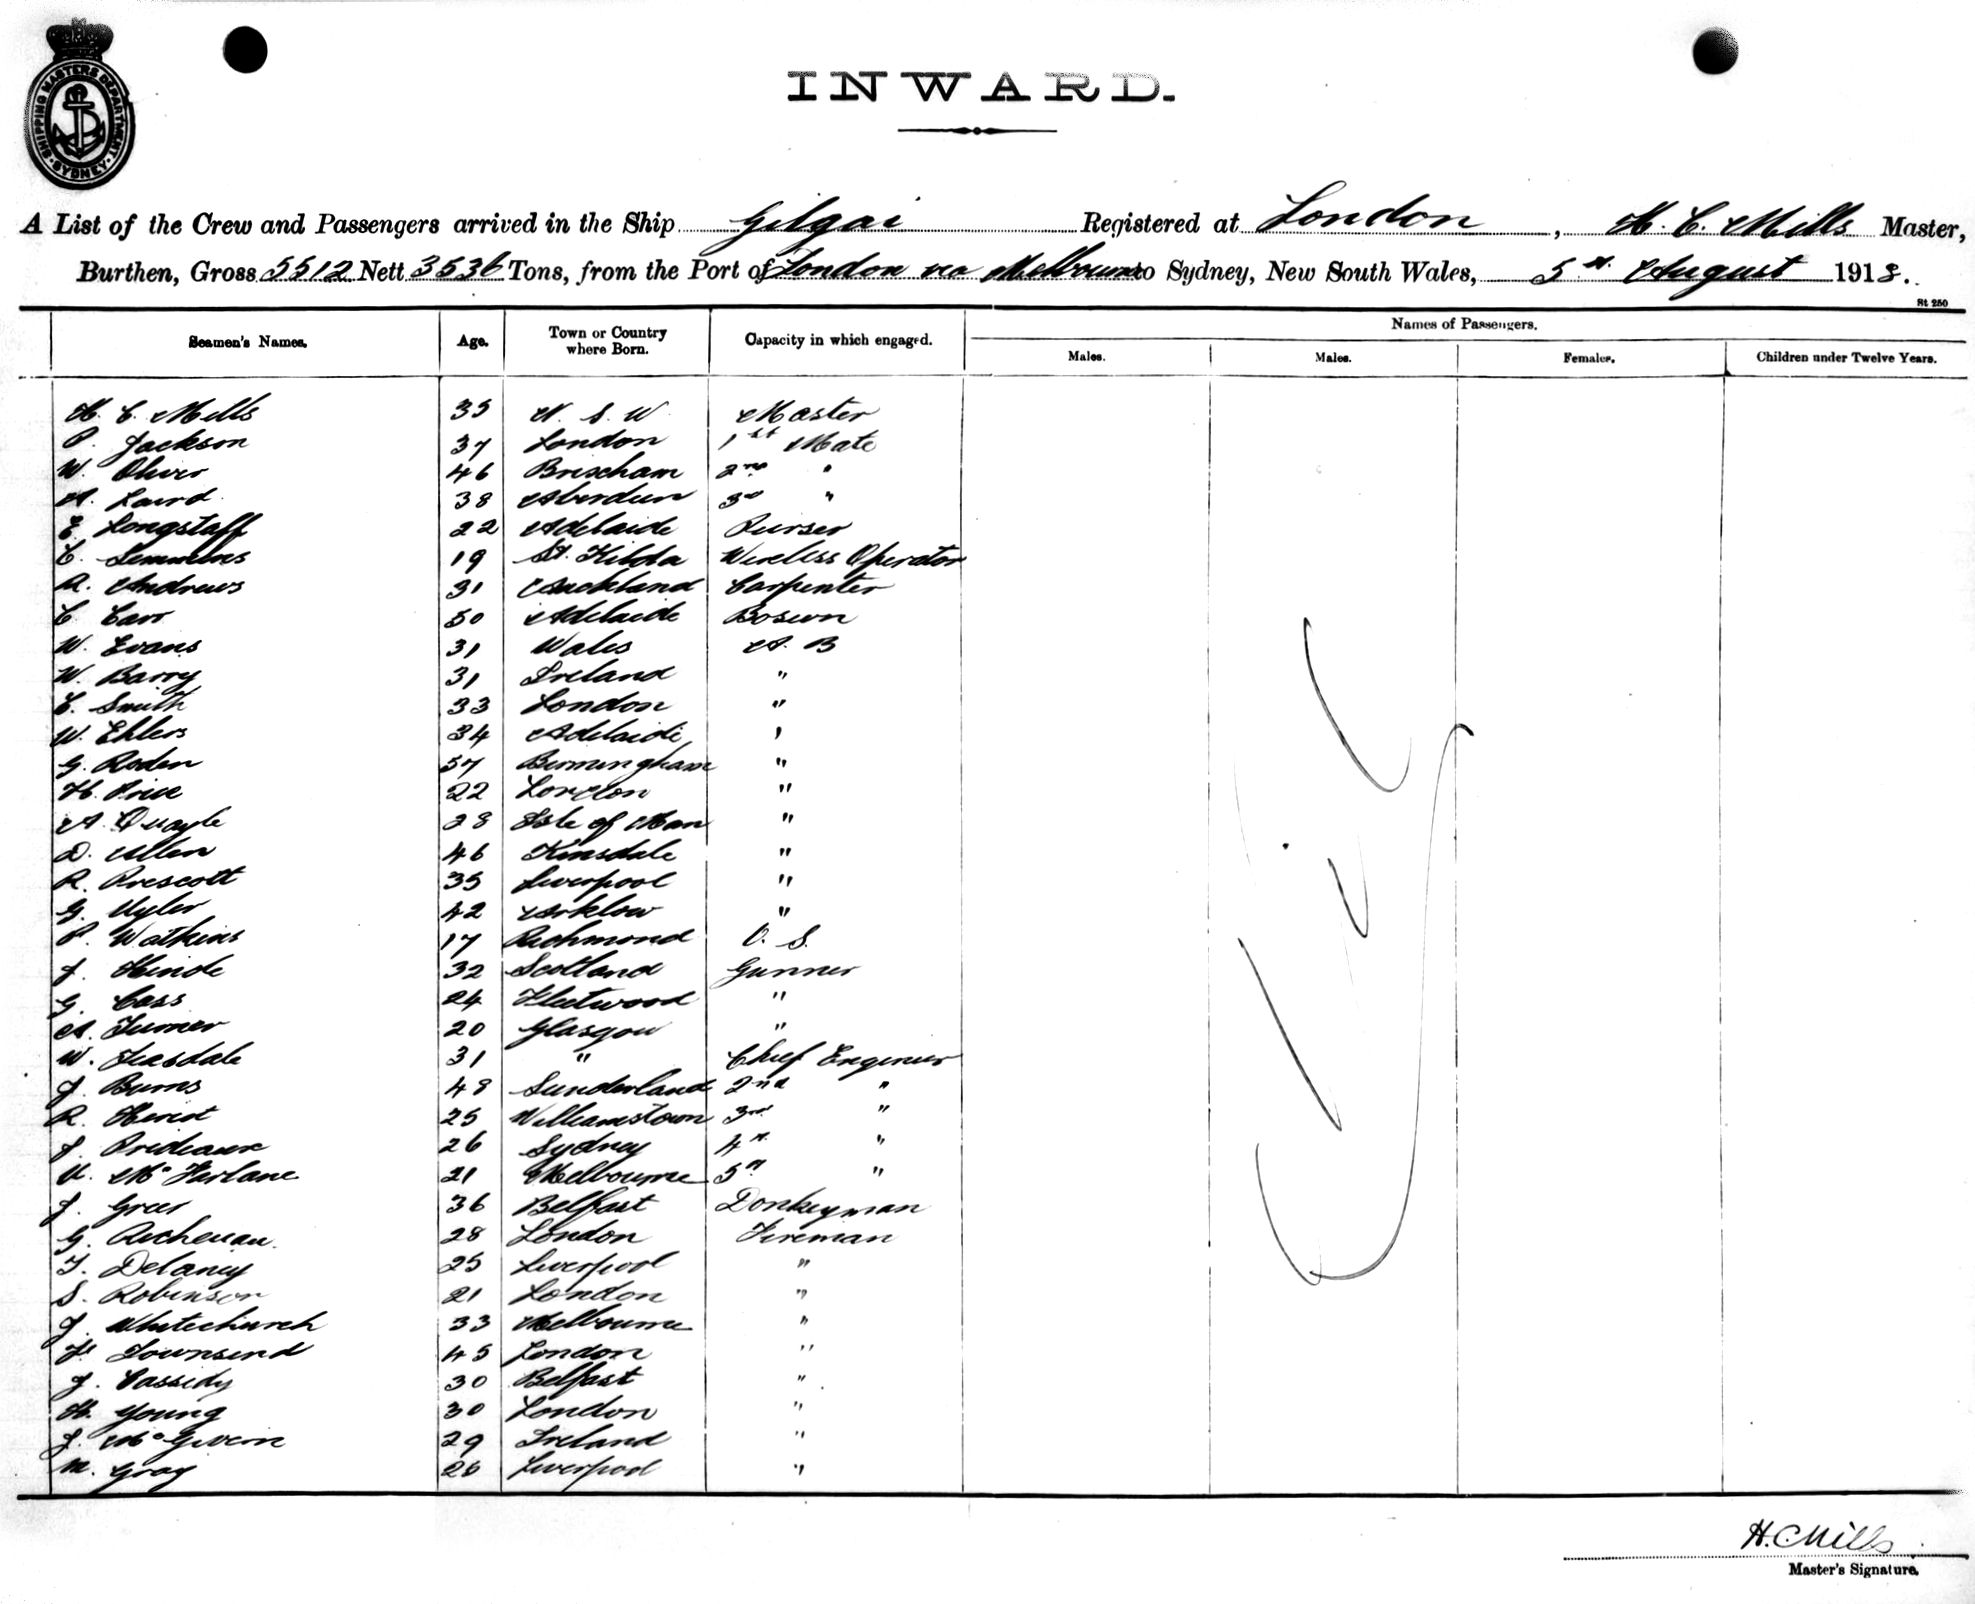 SHIPPING MASTERS DEPARTMENT
SYDNEY
INWARD.
A List of the Crew and Passengers arrived in the Ship Gilgai Registered at London, H. C. Mills Master,
Burthen, Gross 5512 Nett 3536 Tons, from the Port of London via Melbourne to Sydney, New South Wales, 5th August 1918.
St 250
Seamen's Names. Age. Town or Country where Born. Capacity in which engaged. Names of Passengers.
Males. Males. Females. Children under Twelve Years.
H. C. Mills 35 N. S. W Master
P. Jackson 37 London 1st Mate
W. Oliver 46 Brixham 2nd "
A. Laird 38 Aberdeen 3rd "
E. Longstaff 22 Adelaide Purser
C. Semmens 19 St. Kilda Wireless Operator
R. Andrews 31 Auckland Carpenter
C Carr 50 Adelaide Bosun
W. Evans 31 Wales A. B
W. Barry 31 Ireland "
E. Smith 33 London "
W. Ehlers 34 Adelaide "
G. Roden 57 Birmingham "
H. Price 22 London "
A. Quayle 28 Isle of Man "
D. Allen 46 Kinsdale "
R. Prescott 35 Liverpool "
G. 42 Arklow "
P. Watkins 17 Richmond O. S.
J. Hinde 32 Scotland Gunner
G. Cass 24 Fleetwood "
A. Turner 20 Glasgow "
W. Teasdale 31 " Chief Engineer
J. Burns 48 Sunderland 2nd "
R. Heriot 25 Williamstown 3rd "
J. Prideaux 26 Sydney 4th "
McFarlane 21 Melbourne 5th "
J. Greer 36 Belfast Donkeyman
G. 28 London Fireman
T. Delaney 25 Liverpool "
S. Robinson 21 London "
J. Whitechurch 33 Melbourne "
Townsend 45 London "
J. Cassidy 30 Belfast "
H. Young 30 London "
J. McGivern 29 Ireland "
M. Gray 26 Liverpool "
H. C Mills
Master's Signature.